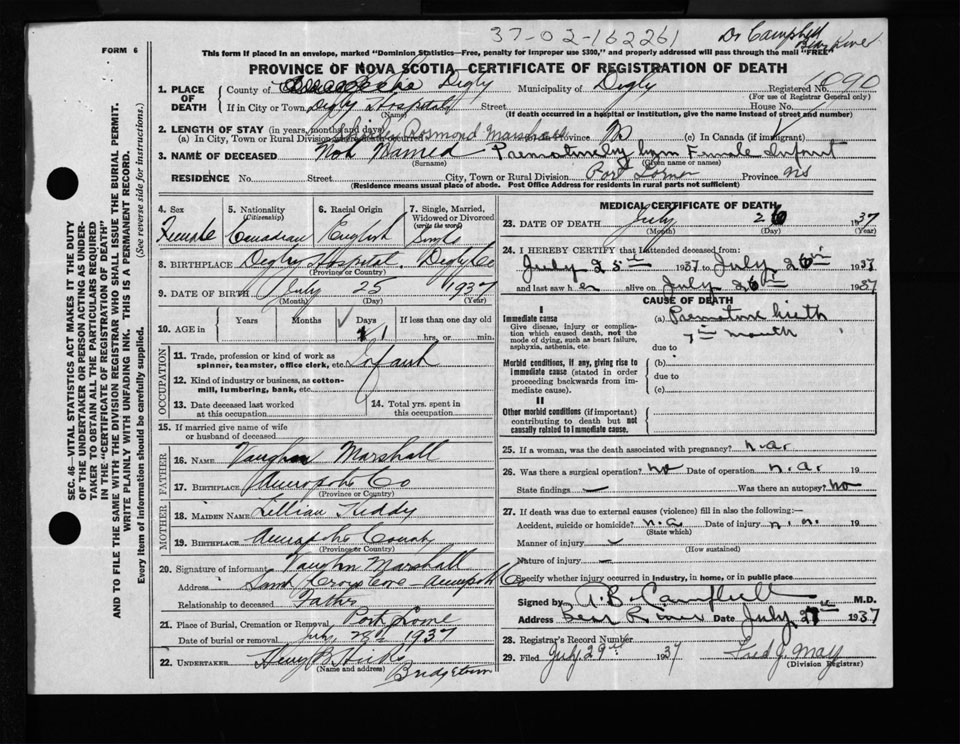 37-02-162261
Dr Campbell
Bear River
FORM 6
This form if placed in an envelope, marked "Dominion Statistics—Free, penalty for improper use $300," and properly addressed will pass through the mail "FREE"
PROVINCE OF NOVA SCOTIA—CERTIFICATE OF REGISTRATION OF DEATH
1. PLACE OF DEATH County of Digby Municipality of Digby Registered No. 1090
(For use of Registrar General only)
If in City or Town Digby Hospital Street House No.
(If death occurred in a hospital or institution, give the name instead of street and number)
2. LENGTH OF STAY (in years, months and days)
(a) In City, Town or Rural Division Rosmond Marshall Province (c) In Canada (if immigrant)
3. NAME OF DECEASED Not Named Prematurely born Female Infant
(Surname) (Given name or names)
RESIDENCE No. Street City, Town or Rural Division Port Lorne Province NS
(Residence means usual place of abode. Post Office Address for residents in rural parts not sufficient)
4. Sex Female
5. Nationality (Citizenship) Canadian
6. Racial Origin English
7. Single, Married, Widowed or Divorced (write the word) Single
8. BIRTHPLACE Digby Hospital, Digby Co
(Province or Country)
9. DATE OF BIRTH July 25 1937
(Month) (Day) (Year)
10. AGE in Years Months Days 1 If less than one day old
hrs, or min.
OCCUPATION
11. Trade, profession or kind of work as spinner, teamster, office clerk, etc. Infant
12. Kind of industry or business, as cotton-mill, lumbering, bank, etc.
13. Date deceased last worked at this occupation
14. Total yrs. spent in this occupation
15. If married give name of wife or husband of deceased
FATHER
16. NAME Vaughn Marshall
17. BIRTHPLACE Annapolis Co
(Province or Country)
MOTHER
18. MAIDEN NAME Lillian Hiddy
19. BIRTHPLACE Annapolis County
(Province or Country)
20. Signature of informant Vaughn Marshall
Address Cove Annapolis Co
Relationship to deceased Father
21. Place of Burial, Cremation or Removal Port Lorne
Date of burial or removal July 28 1937
22. UNDERTAKER Henry B. Hicks
(Name and address) Bridgetown
MEDICAL CERTIFICATE OF DEATH
23. DATE OF DEATH July 26 1937
(Month) (Day) (Year)
24. I HEREBY CERTIFY that I attended deceased from:
July 25th 1937 to July 26th 1937
and last saw her alive on July 26th 1937
CAUSE OF DEATH
I
Immediate cause
Give disease, injury or complication which caused death, not the mode of dying, such as heart failure, asphyxia, asthenia, etc.
(a) Premature birth
7th month
due to
Morbid conditions, if any, giving rise to immediate cause (stated in order proceeding backwards from immediate cause).
(b)
due to
(c)
II
Other morbid conditions (if important) contributing to death but not causally related to immediate cause.
25. If a woman, was the death associated with pregnancy? n.a.
26. Was there a surgical operation? no Date of operation n.a. 19
State findings — Was there an autopsy? no
27. If death was due to external causes (violence) fill in also the following:—
Accident, suicide or homicide? n.a Date of injury n.a. 19
(State which)
Manner of injury —
(How sustained)
Nature of injury —
Specify whether injury occurred in industry, in home, or in public place
Signed by A. B. Campbell M.D.
Address Bear River Date July 27th 1937
28. Registrar's Record Number
29. Filed July 29th 1937 Fred J. May
(Division Registrar)
SEC. 46—VITAL STATISTICS ACT MAKES IT THE DUTY
OF THE UNDERTAKER OR PERSON ACTING AS UNDER-
TAKER TO OBTAIN ALL THE PARTICULARS REQUIRED
IN THE "CERTIFICATE OF REGISTRATION OF DEATH"
AND TO FILE THE SAME WITH THE DIVISION REGISTRAR WHO SHALL ISSUE THE BURIAL PERMIT.
WRITE PLAINLY WITH UNFADING INK. THIS IS A PERMANENT RECORD.
Every item of information should be carefully supplied. (See reverse side for instructions.)